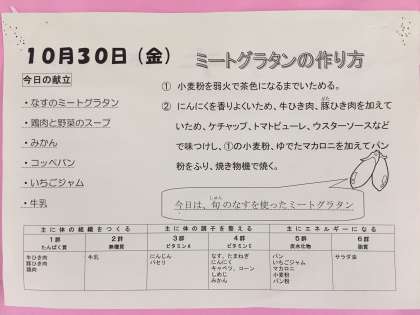 10月30日（金）
ミートグラタンの作り方
今日の献立
・なすのミートグラタン
・鶏肉と野菜のスープ
・みかん
・コッペパン
・いちごジャム
・牛乳
① 小麦粉を弱火で茶色になるまでいためる。
② にんにくを香りよくいため、牛ひき肉、豚ひき肉を加えて
いため、ケチャップ、トマトピューレ、ウスターソースなど
で味つけし、①の小麦粉、ゆでたマカロニを加えてパン
粉をふり、焼き物機で焼く。
今日は、旬のなすを使ったミートグラタン
主に体の組織をつくる 主に体の調子を整える 主にエネルギーになる
1群 2群 3群 4群 5群 6群
たんぱく質 無機質 ビタミンA ビタミンC 炭水化物 脂質
牛ひき肉 牛乳 にんじん なす、たまねぎ パン サラダ油
豚ひき肉 パセリ にんにく いちごジャム
鶏肉 キャベツ、コーン マカロニ
しめじ 小麦粉
みかん パン粉